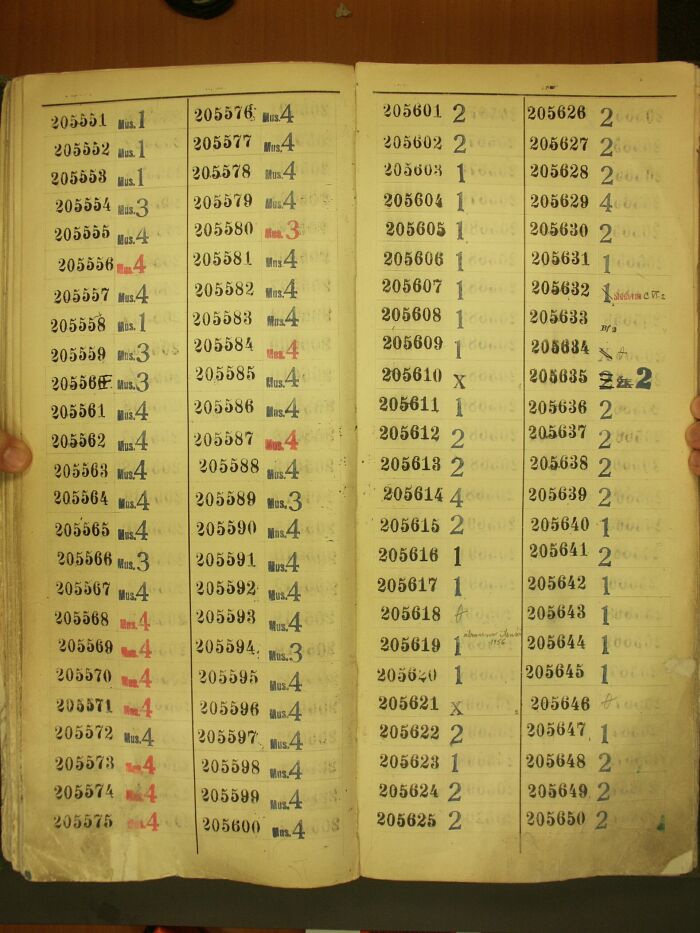 205551 Mus. 1
205552 Mus. 1
205553 Mus. 1
205554 Mus. 3
205555 Mus. 4
205556 Mus. 4
205557 Mus. 4
205558 Mus. 1
205559 Mus. 3
20556 Mus. 3
205561 Mus. 4
205562 Mus. 4
205563 Mus. 4
205564 Mus. 4
205565 Mus. 4
205566 Mus. 3
205567 Mus. 4
205568 Mus. 4
205569 Mus. 4
205570 Mus. 4
205571 Mus. 4
205572 Mus. 4
205573 Mus. 4
205574 Mus. 4
205575 Mus. 4
205576 Mus. 4
205577 Mus. 4
205578 Mus. 4
205579 Mus. 4
205580 Mus. 3
205581 Mus. 4
205582 Mus. 4
205583 Mus. 4
205584 Mus. 4
205585 Mus. 4
205586 Mus. 4
205587 Mus. 4
205588 Mus. 4
205589 Mus. 3
205590 Mus. 4
205591 Mus. 4
205592 Mus. 4
205593 Mus. 4
205594 Mus. 3
205595 Mus. 4
205596 Mus. 4
205597 Mus. 4
205598 Mus. 4
205599 Mus. 4
205600 Mus. 4
205601 2
205602 2
205603 1
205604 1
205605 1
205606 1
205607 1
205608 1
205609 1
205610 X
205611 1
205612 2
205613 2
205614 4
205615 2
205616 1
205617 1
205618
205619 1 1956
205620 1
205621 X
205622 2
205623 1
205624 2
205625 2
205626 2
205627 2
205628 2
205629 4
205630 2
205631 1
205632 1
205633
205634 X
205635 2 2
205636 2
205637 2
205638 2
205639 2
205640 1
205641 2
205642 1
205643 1
205644 1
205645 1
205646
205647 1
205648 2
205649 2
205650 2